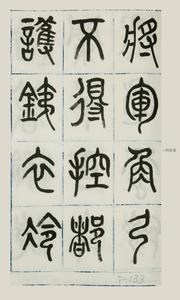 將軍角弓
不得控都
護銕衣冷
P-133